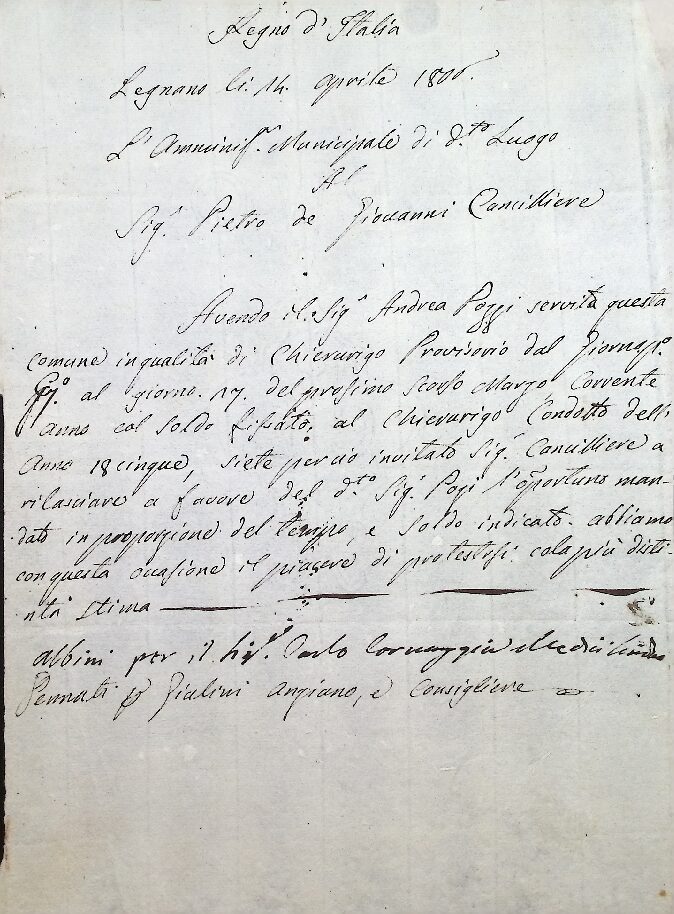 Regno d'Italia
Legnano li. 14. Aprile 1806.
L'Amminis.e Municipale di d.to Luogo
Al
Sig.r Pietro de Giovanni Cancilliere
Avendo il Sig.r Andrea Pozzi servita questa
comune in qualità di Chierurigo Provisorio dal Giorno p.o
al giorno 17. del prosimo scorso Marzo Corrente
Anno col soldo fissato al Chierurigo Condotto dell'
Anno 18cinque, siete perciò invitato Sig.r Cancilliere a
rilasciare a favore del d.to Sig.r Pozi l'oportuno man-
dato in proporzione del tempo, e soldo indicato. abbiamo
con questa ocasione il piacere di protestosi cola più disti-
nta stima
Albini per il Sig.r Carlo Cornaggia Medici
Pennati p Gialini Anziano, e Consigliere